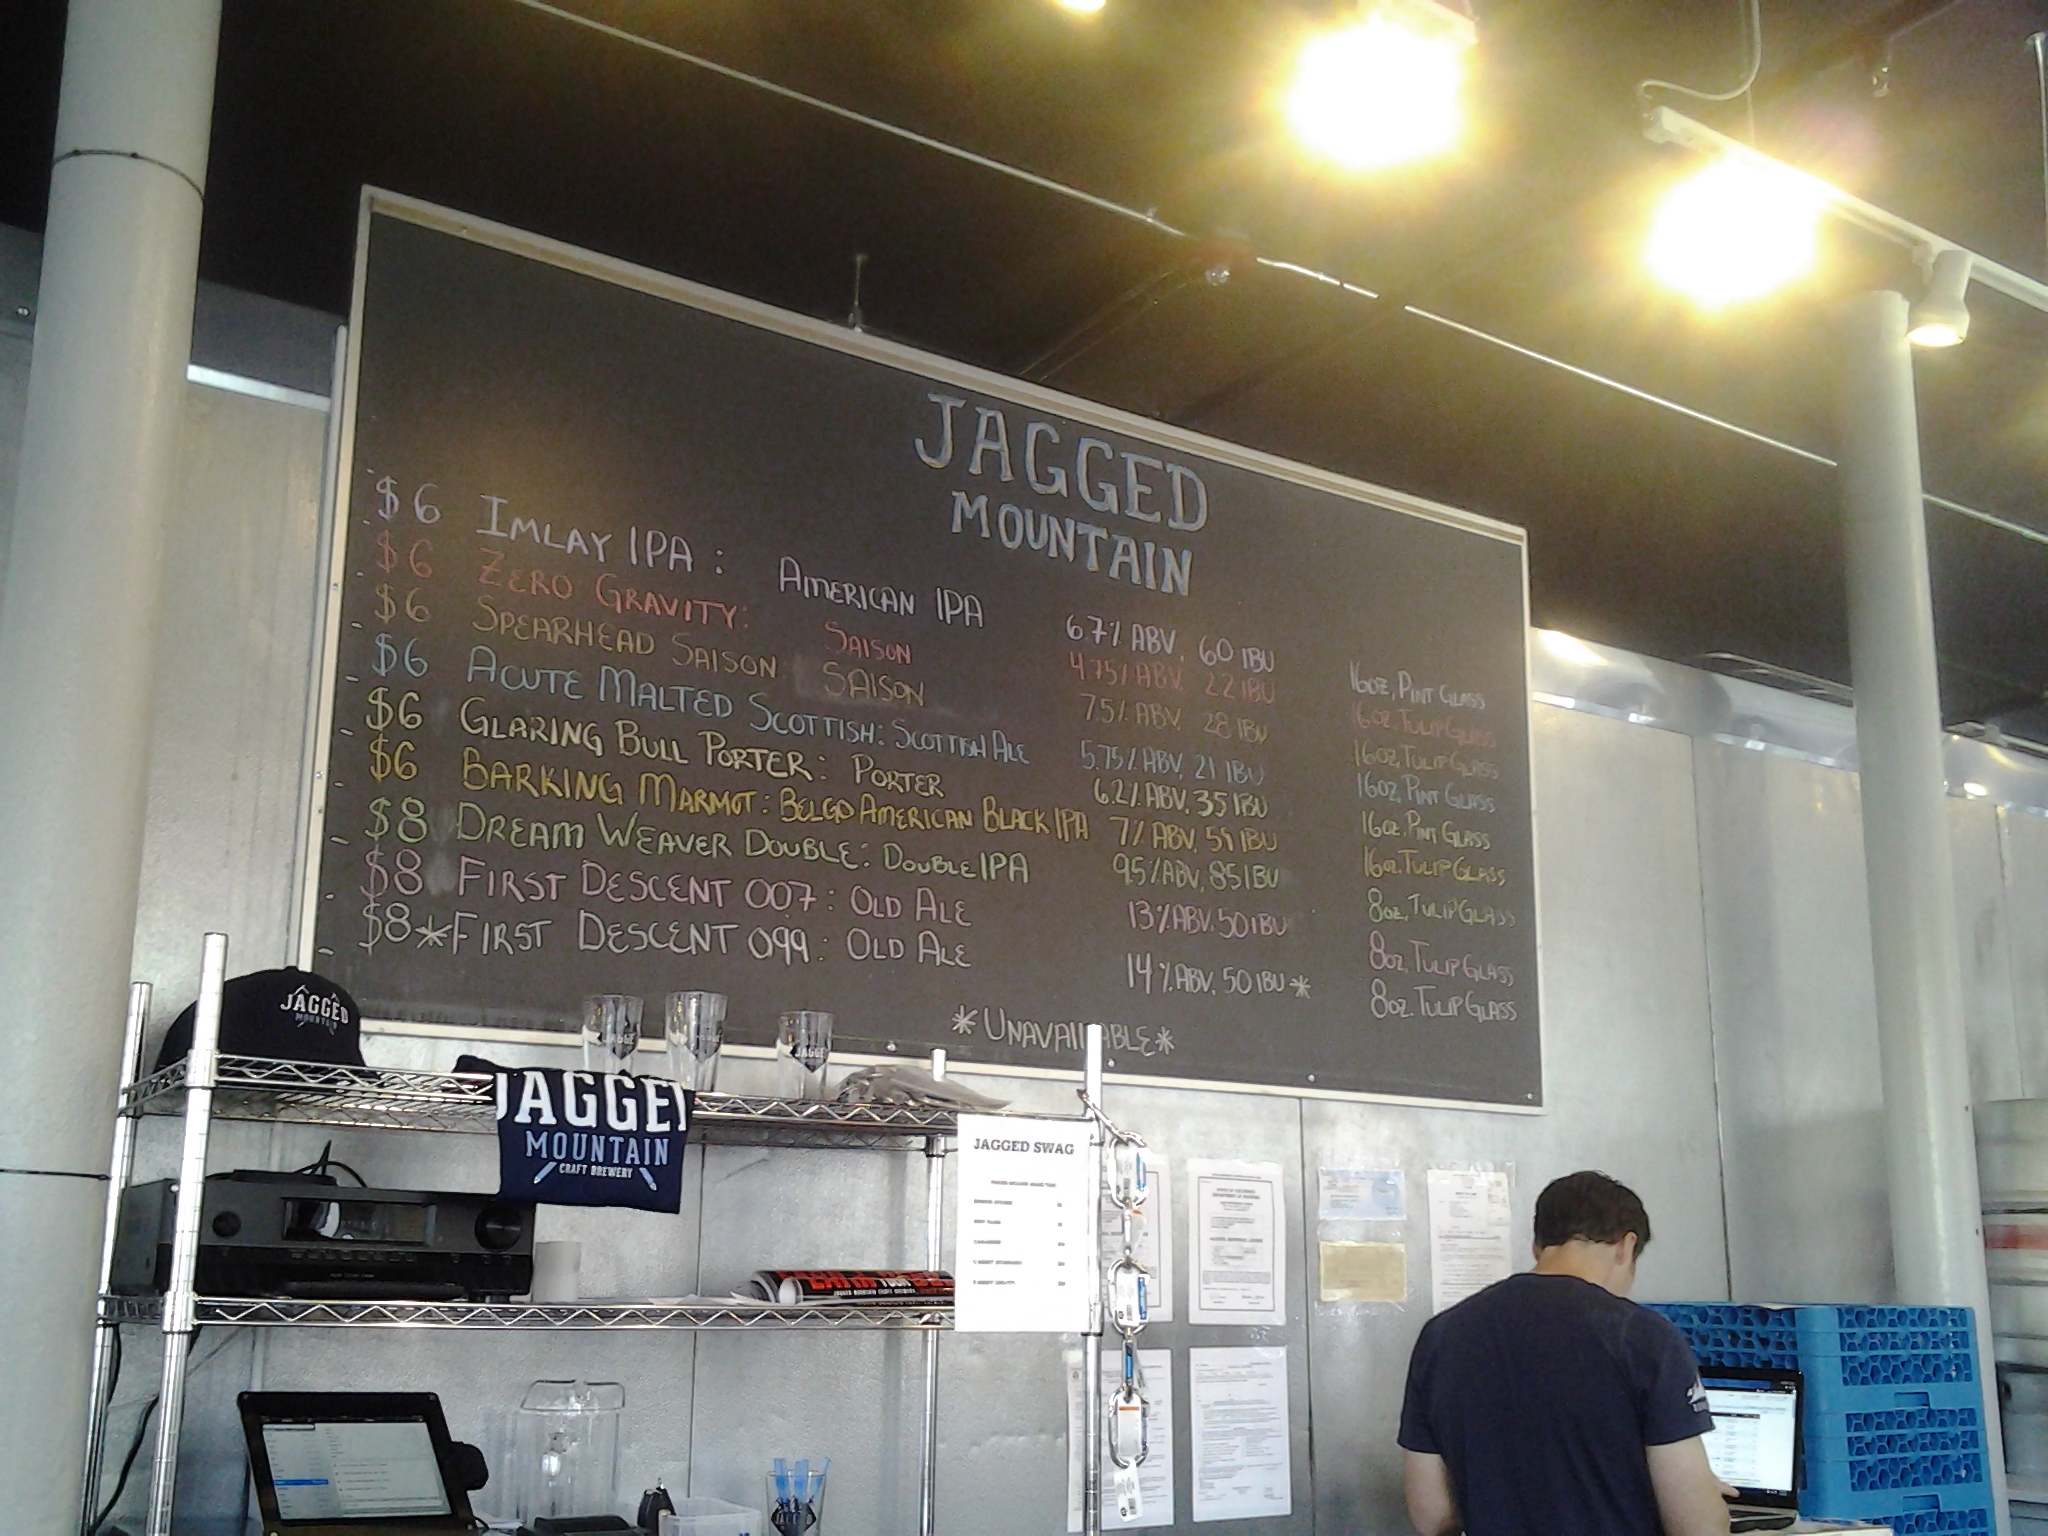 JAGGED
MOUNTAIN
$6 IMLAY IPA: AMERICAN IPA 6.7% ABV, 60 IBU 16OZ, PINT GLASS
$6 ZERO GRAVITY: SAISON 4.75% ABV 22 IBU 16OZ. TULIP GLASS
$6 SPEARHEAD SAISON SAISON 7.5% ABV 28 IBU 16OZ TULIP GLASS
$6 ACUTE MALTED SCOTTISH: SCOTTISH ALE 5.75% ABV, 21 IBU 16OZ, PINT GLASS
$6 GLARING BULL PORTER: PORTER 6.2% ABV, 35 IBU 16OZ. PINT GLASS
$6 BARKING MARMOT: BELGO AMERICAN BLACK IPA 7% ABV, 59 IBU 16OZ. TULIP GLASS
$8 DREAM WEAVER DOUBLE: DOUBLE IPA 9.5% ABV, 85 IBU 8OZ, TULIP GLASS
$8 FIRST DESCENT 007: OLD ALE 13% ABV, 50 IBU 8OZ, TULIP GLASS
$8 *FIRST DESCENT 099: OLD ALE 14% ABV, 50 IBU* 8OZ. TULIP GLASS
*UNAVAILABLE*
JAGGED
MOUNTAIN
JAGGED
MOUNTAIN
CRAFT BREWERY
JAGGED SWAG